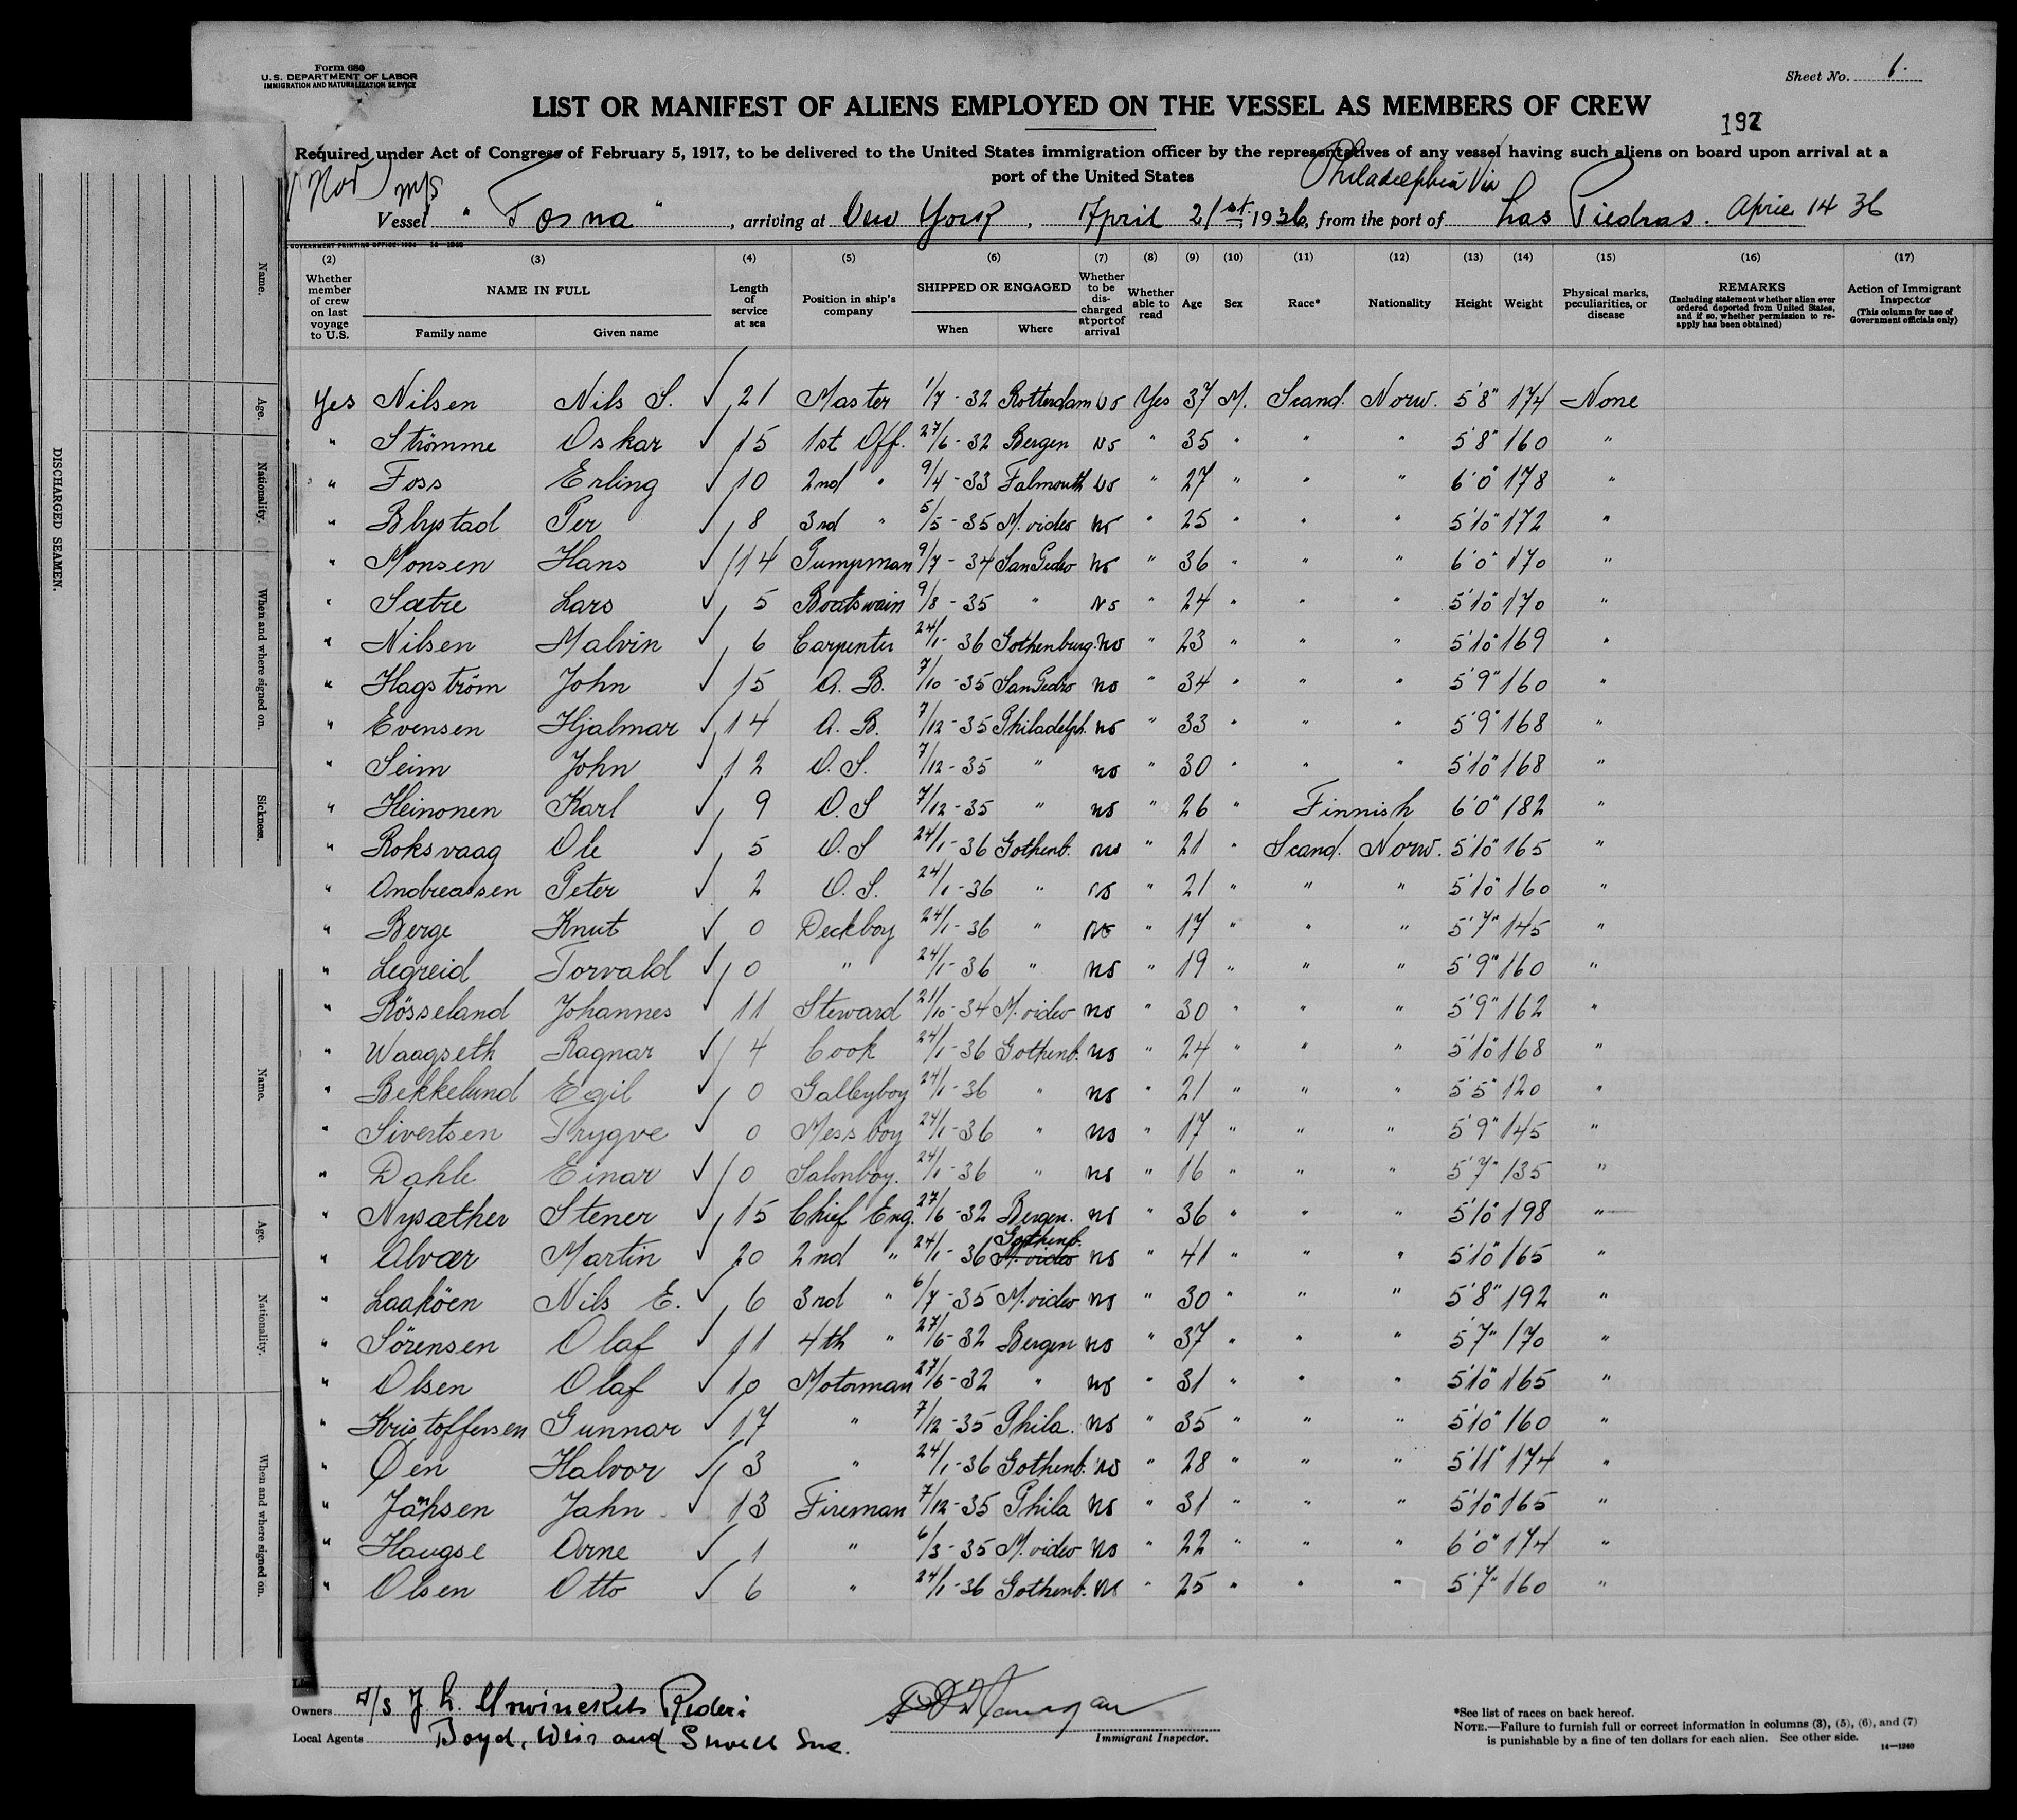 Form 680
U.S. DEPARTMENT OF LABOR
IMMIGRATION AND NATURALIZATION SERVICE
Sheet No. 1.
LIST OR MANIFEST OF ALIENS EMPLOYED ON THE VESSEL AS MEMBERS OF CREW
192
Required under Act of Congress of February 5, 1917, to be delivered to the United States immigration officer by the representatives of any vessel having such aliens on board upon arrival at a
port of the United States
(Nor) m/s Philadelphia Via
Vessel "Tosna", arriving at New York, April 21st, 1936, from the port of Las Piedras. April 14 36
GOVERNMENT PRINTING OFFICE
(2) (3) (4) (5) (6) (7) (8) (9) (10) (11) (12) (13) (14) (15) (16) (17)
Whether member of crew on last voyage to U.S. NAME IN FULL Family name Given name Length of service at sea Position in ship's company SHIPPED OR ENGAGED When Where Whether to be discharged at port of arrival Whether able to read Age Sex Race* Nationality Height Weight Physical marks, peculiarities, or disease REMARKS (Including statement whether alien ever ordered deported from United States, and if so, whether permission to reapply has been obtained) Action of Immigrant Inspector (This column for use of Government officials only)
Yes Nilsen Nils S. ✓ 21 Master 1/7-32 Rotterdam no Yes 37 M. Scand. Norw. 5'8" 174 None
" Strömme Oskar ✓ 15 1st Off. 27/6-32 Bergen no " 35 " " " 5'8" 160 "
" Foss Erling ✓ 10 2nd " 9/4-33 Falmouth no " 27 " " " 6'0" 178 "
" Blystad Per ✓ 8 3rd " 5/5-35 M.video no " 25 " " " 5'10" 172 "
" Monsen Hans ✓ 14 Pumpman 9/7-34 San Pedro no " 36 " " " 6'0" 170 "
" Sætre Lars ✓ 5 Boatswain 9/8-35 " no " 24 " " " 5'10" 170 "
" Nilsen Malvin ✓ 6 Carpenter 24/1-36 Gothenburg. no " 23 " " " 5'10" 169 "
" Hagström John ✓ 15 A.B. 7/10-35 San Pedro no " 34 " " " 5'9" 160 "
" Evensen Hjalmar ✓ 14 A.B. 7/12-35 Philadelph. no " 33 " " " 5'9" 168 "
" Seim John ✓ 12 O.S. 7/12-35 " no " 30 " " " 5'10" 168 "
" Heinonen Karl ✓ 9 O.S 7/12-35 " no " 26 " Finnish 6'0" 182 "
" Roksvaag Ole ✓ 5 O.S 24/1-36 Gothenb. no " 21 " Scand. Norw. 5'10" 165 "
" Andreassen Peter ✓ 2 O.S. 24/1-36 " no " 21 " " " 5'10" 160 "
" Berge Knut ✓ 0 Deckboy 24/1-36 " no " 17 " " " 5'7" 145 "
" Legreid Torvald ✓ 0 " 24/1-36 " no " 19 " " " 5'9" 160 "
" Rösseland Johannes ✓ 11 Steward 21/10-34 M.video no " 30 " " " 5'9" 162 "
" Waagseth Ragnar ✓ 4 Cook 24/1-36 Gothenb. no " 24 " " " 5'10" 168 "
" Bekkelund Egil ✓ 0 Galleyboy 24/1-36 " no " 21 " " " 5'5" 120 "
" Sivertsen Trygve ✓ 0 Mess boy 24/1-36 " no " 17 " " " 5'9" 145 "
" Dahle Einar ✓ 0 Salonboy. 24/1-36 " no " 16 " " " 5'7" 135 "
" Nysæther Stener ✓ 15 Chief Eng. 27/6-32 Bergen. no " 36 " " " 5'10" 198 "
" Alvær Martin ✓ 20 2nd " 24/1-36 Gothenb. M.video no " 41 " " " 5'10" 165 "
" Laaköen Nils E. ✓ 6 3rd " 6/7-35 M.video no " 30 " " " 5'8" 192 "
" Sörensen Olaf ✓ 11 4th " 27/6-32 Bergen no " 37 " " " 5'7" 170 "
" Olsen Olaf ✓ 10 Motorman 27/6-32 " no " 31 " " " 5'10" 165 "
" Kristoffersen Gunnar ✓ 17 " 7/12-35 Phila. no " 35 " " " 5'10" 160 "
" Øen Halvor ✓ 3 " 24/1-36 Gothenb. no " 28 " " " 5'11" 174 "
" Jahnsen Jahn ✓ 13 Fireman 7/12-35 Phila no " 31 " " " 5'10" 165 "
" Haugse Arne ✓ 1 " 6/3-35 M.video no " 22 " " " 6'0" 174 "
" Olsen Otto ✓ 6 " 24/1-36 Gothenb. no " 25 " " " 5'7" 160 "
Owners A/s J. L. Mowinckels Rederi
Local Agents Boyd, Weir and Sewell Inc.
Immigrant Inspector.
*See list of races on back hereof.
NOTE.—Failure to furnish full or correct information in columns (3), (5), (6), and (7)
is punishable by a fine of ten dollars for each alien. See other side.
14—1240
DISCHARGED SEAMEN.
Name.
Age.
Nationality.
When and where signed on.
Sickness.
Name.
Age.
Nationality.
When and where signed on.